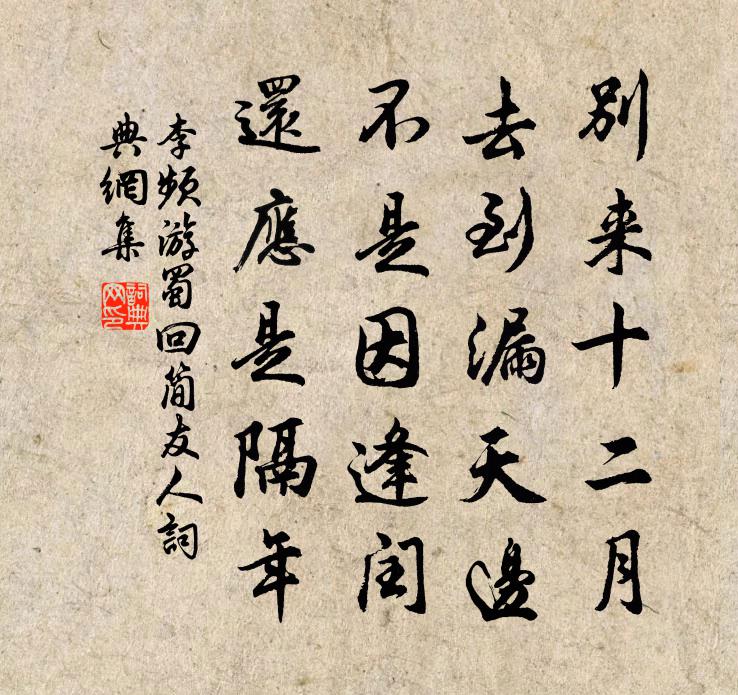 別来十二月
去到漏天邊
不是因逢閏
還應是隔年
李頻游蜀回簡友人詞
典網集
詞典網印